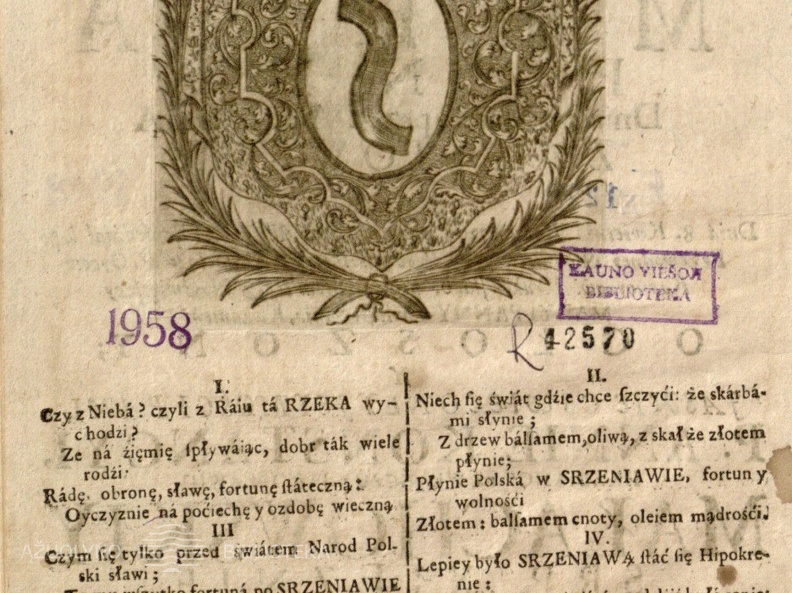 KAUNO VIEŠOJI
BIBLIOTEKA
1958
R 42570
I.
Czy z Niebá? czyli z Ráiu tá RZEKA wy-
chodzi?
Ze ná źięmię spływáiąc, dobr ták wiele
rodźi:
Rádę, obronę, sławę, fortunę státeczną:
Oyczyznie ná poćiechę y ozdobę wieczną
III
Czym się tylko przed świátem Narod Pol-
ski sławi;
wszytko fortuná po SRZENIAWIE
II.
Niech się świát gdźie chce szczyći: że skárbá-
mi słynie;
Z drzew bálsamem, oliwą, z skał że złotem
płynie;
Płynie Polská w SRZENIAWIE, fortun y
wolnośći
Złotem: balsamem cnoty, oleiem mądrośći.
IV.
Lepiey było SRZENIAWĄ stáć się Hipokre-
nie: